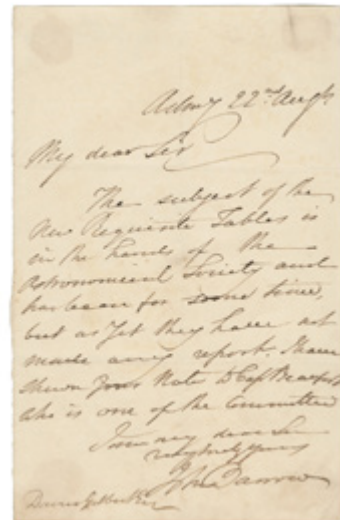 Admy 22nd Augst
My dear Sir
The subject of the
New Requisite Tables is
in the hands of the
Astronomical Society and
has been for some time,
but as yet they have not
made any report. I have
shewn your Note to Capt Beaufort
who is one of the Committee
I am my dear Sir
very truly yours
John Barrow
Davies Gilbert Esqr